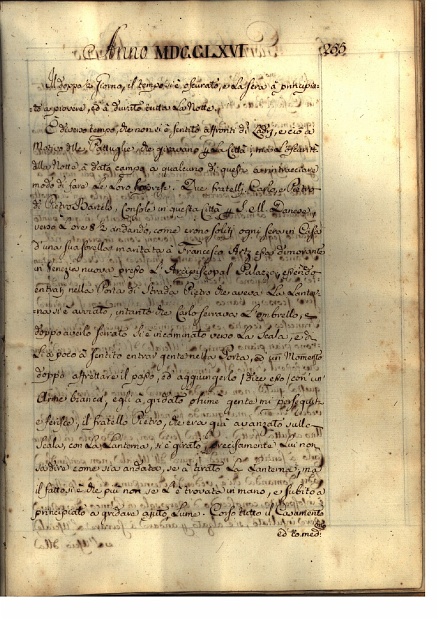 Anno MDCCLXVI
Il doppo di Torno, il tempo si è oscurato, e la sera à principia-
to a piovere, ed à durato tutta la Notte.
E diverso tempo, che non si è sentito affronti di Ladri, e ciò a
delle Pattuglie, che giravano la Città; ma l'oscurità
della Notte à dato campo a qualcuno di questi a rintracciare
modo di fare le loro. Due fratelli, Carlo, e Pietro
di Pietro Console in questa Città S. M. Danese,
verso le ore 8 ½ andando, come erono soliti ogni sera in Casa
d'una sua sorella maritata à Francesco ed essa dimorante
in Venezia nuova presso L'Arcipiscopal Palazzo, essendo
entrati nella Porta di Strada Pietro che aveva la Lanter-
na si è avviato, intanto che Carlo serrava l'Ombrello, e
doppo averlo serrato si è incaminato verso La Scala, e di
Lì a poco à sentito entrar gente nella Porta, ed un Momento
doppo affrettare il passo, ed aggiungerlo
Arme bianca, e qui à gridato ohimè gente mi perseguita
e ferisce, il fratello Pietro, che era qui avanzato sulle
Scale, con La Lanterna, si è girato, precisamente Lui non
sa dire come sia andata, se à tirato La Lanterna, ma
il fatto si è che più non se L'è trovata in mano, e subito à
principiato a gridare ajuto, Lume. Corso tutto il Casamento
ed